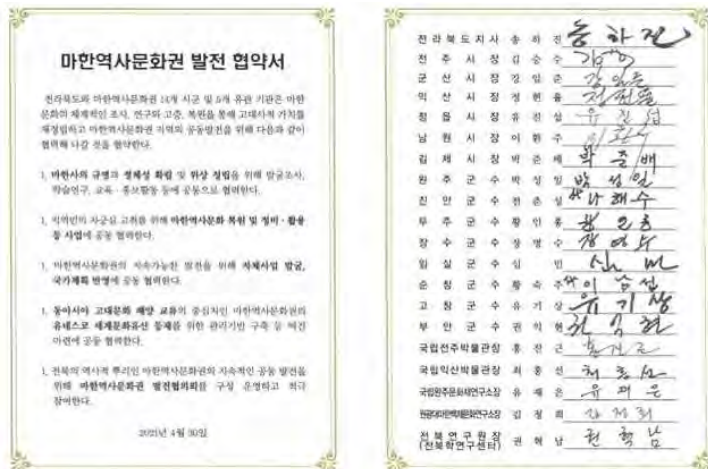 마한역사문화권 발전 협약서
전라북도와 마한역사문화권 14개 시군 및 5개 유관 기관은 마한
문화의 체계적인 조사, 연구와 고증, 복원을 통해 고대사적 가치를
재정립하고 마한역사문화권 지역의 공동발전을 위해 다음과 같이
협력해 나갈 것을 협약한다.
1. 마한사의 규명과 정체성 확립 및 위상 정립을 위해 발굴조사,
학술연구, 교육·홍보활동 등에 공동으로 협력한다.
1. 지역민의 자긍심 고취를 위해 마한역사문화 복원 및 정비·활용
등 사업에 공동 협력한다.
1. 마한역사문화권의 지속가능한 발전을 위해 자체사업 발굴,
국가계획 반영에 공동 협력한다.
1. 동아시아 고대문화 해양 교류의 중심지인 마한역사문화권의
유네스코 세계문화유산 등재를 위한 관리기반 구축 등 여건
마련에 공동 협력한다.
1. 전북의 역사적 뿌리인 마한역사문화권의 지속적인 공동 발전을
위해 마한역사문화권 발전협의회를 구성 운영하고 적극
참여한다.
2021년 4월 30일
전라북도지사 송하진 송하진
전주시장 김승수
군산시장 강임준
익산시장 정헌율
정읍시장 유진섭 유진섭
남원시장 이환주 이환주
김제시장 박준배 박준배
완주군수 박성일 박성일
진안군수 전춘성 나해수
무주군수 황인홍
장수군수 장영수 장영수
임실군수 심민
순창군수 황숙주 이남섭
고창군수 유기상 유기상
부안군수 권익현 권익현
국립전주박물관장 홍진근
국립익산박물관장 최흥선
국립완주문화재연구소장 유재은 유재은
원광대마한백제문화연구소장 김정희
전북연구원장 권혁남 권혁남
(전북학연구센터)